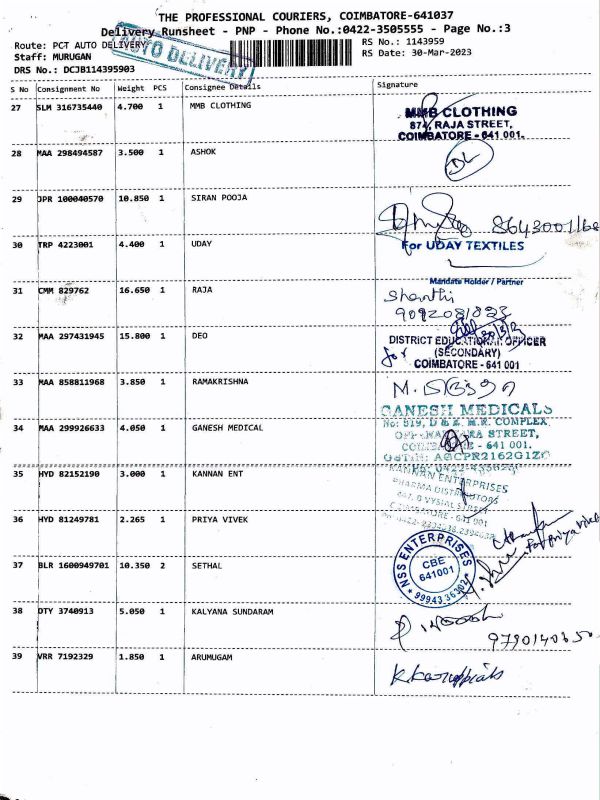 THE PROFESSIONAL COURIERS, COIMBATORE-641037
Delivery Runsheet - PNP - Phone No.:0422-3505555 - Page No.:3
Route: PCT AUTO DELIVERY
AUTO DELIVERY
RS No.: 1143959
Staff: MURUGAN
RS Date: 30-Mar-2023
DRS No.: DCJB114395903
S No Consignment No Weight PCS Consignee Details Signature
27 SLM 316735440 4.700 1 MMB CLOTHING
MMB CLOTHING
874, RAJA STREET,
COIMBATORE - 641 001.
28 MAA 298494587 3.500 1 ASHOK
29 JPR 100040570 10.850 1 SIRAN POOJA
30 TRP 4223001 4.400 1 UDAY
For UDAY TEXTILES
Mandate Holder / Partner
31 CMM 829762 16.650 1 RAJA
Shanthi
32 MAA 297431945 15.800 1 DEO
DISTRICT EDUCATIONAL OFFICER
(SECONDARY)
for
COIMBATORE - 641 001
33 MAA 858811968 3.850 1 RAMAKRISHNA
34 MAA 299926633 4.050 1 GANESH MEDICAL
GANESH MEDICALS
STREET,
- 641 001.
35 HYD 82152190 3.000 1 KANNAN ENT
KANNAN ENTERPRISES
PHARMA DISTRIBUTORS
COIMBATORE - 641 001
36 HYD 81249781 2.265 1 PRIYA VIVEK
For Priya Vivek
37 BLR 1600949701 10.350 2 SETHAL
NSS ENTERPRISES
CBE
641001
38 DTY 3740913 5.050 1 KALYANA SUNDARAM
39 VRR 7192329 1.850 1 ARUMUGAM